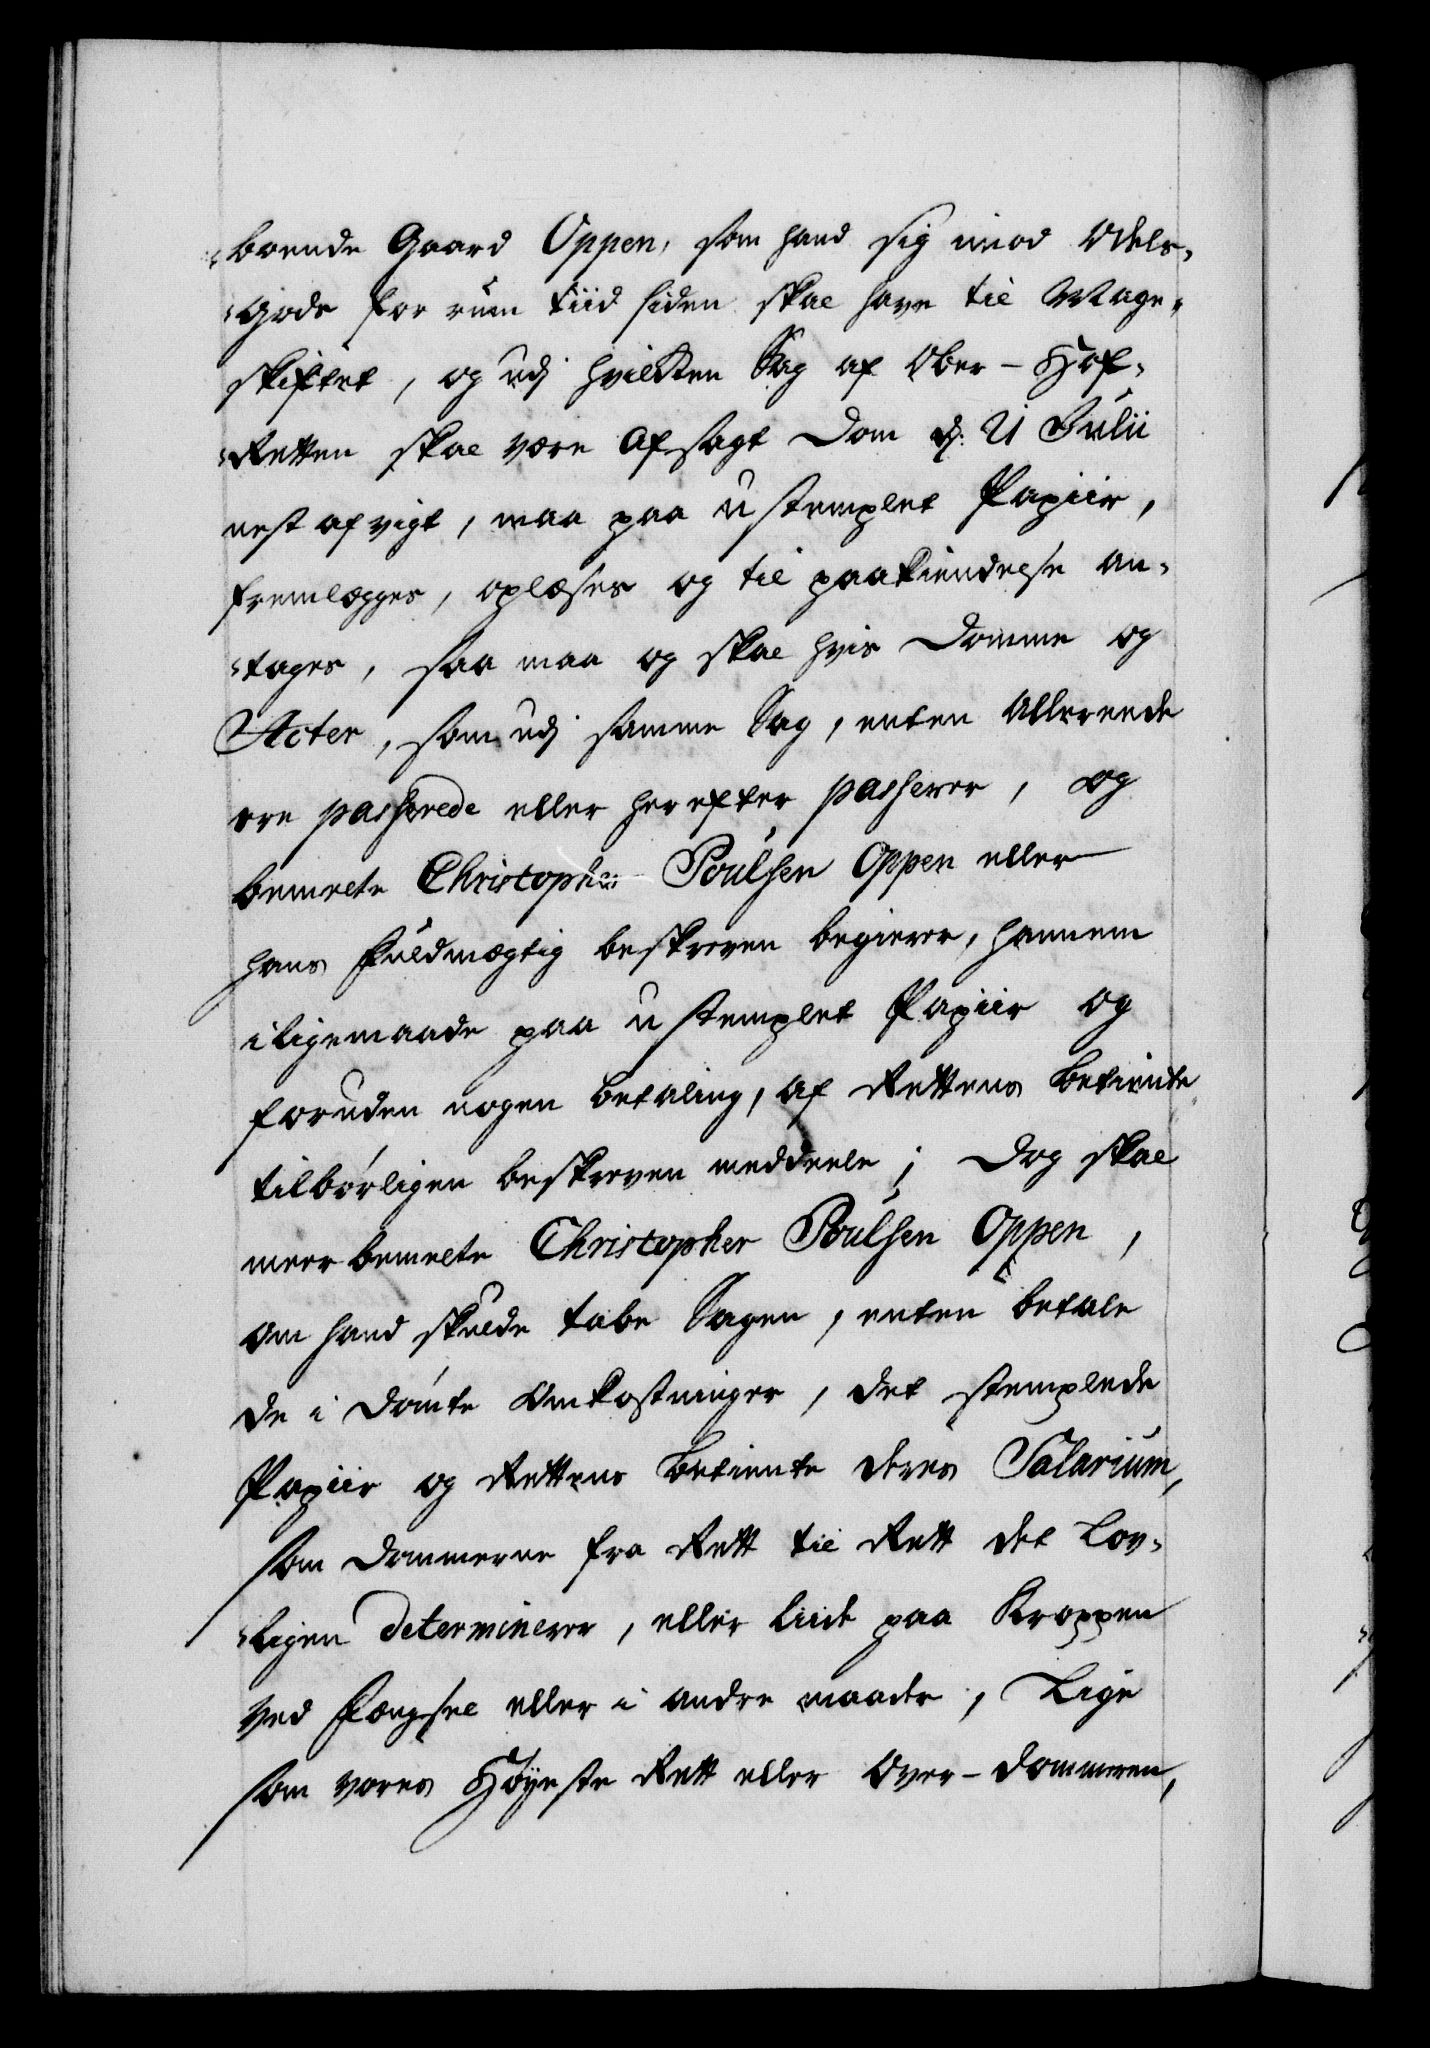 boende Gaard Oppen, som hand sig imod Odels-
gods for rum tiid siden skal have til Mage-
skiftet, og udj hvilken Sag af Ober-Hof-
Retten skal være afsagt Dom d: 21 Julii
nest afvigt, maa paa ustemplet Papiir,
fremlegges, oplæses og til paakiendelse an-
tages, saa maa og skal hvis Domme og
Acter, som udj samme Sag, enten allereede
ere passerede eller herefter passerer, og
bemelte Christopher Poulsen Oppen eller
hans fuldmægtig beskreven begierer, hannem
iligemaade paa ustemplet Papiir og
foruden nogen betaling, af Rettens betiente
tilbørligen beskreven meddeele; Dog skal
meerbemelte Christopher Poulsen Oppen,
om hand skulde tabe Sagen, enten betale
de idømte Omkostninger, det stemplede
Papiir og Rettens betiente deres Salarium,
som Dommerne fra Rett til Rett det Lov-
ligen determinerer, eller liide paa Kroppen
ved Fængsel eller i andre maader, Lige
som vores Høyeste Rett eller Over-Dommeren,